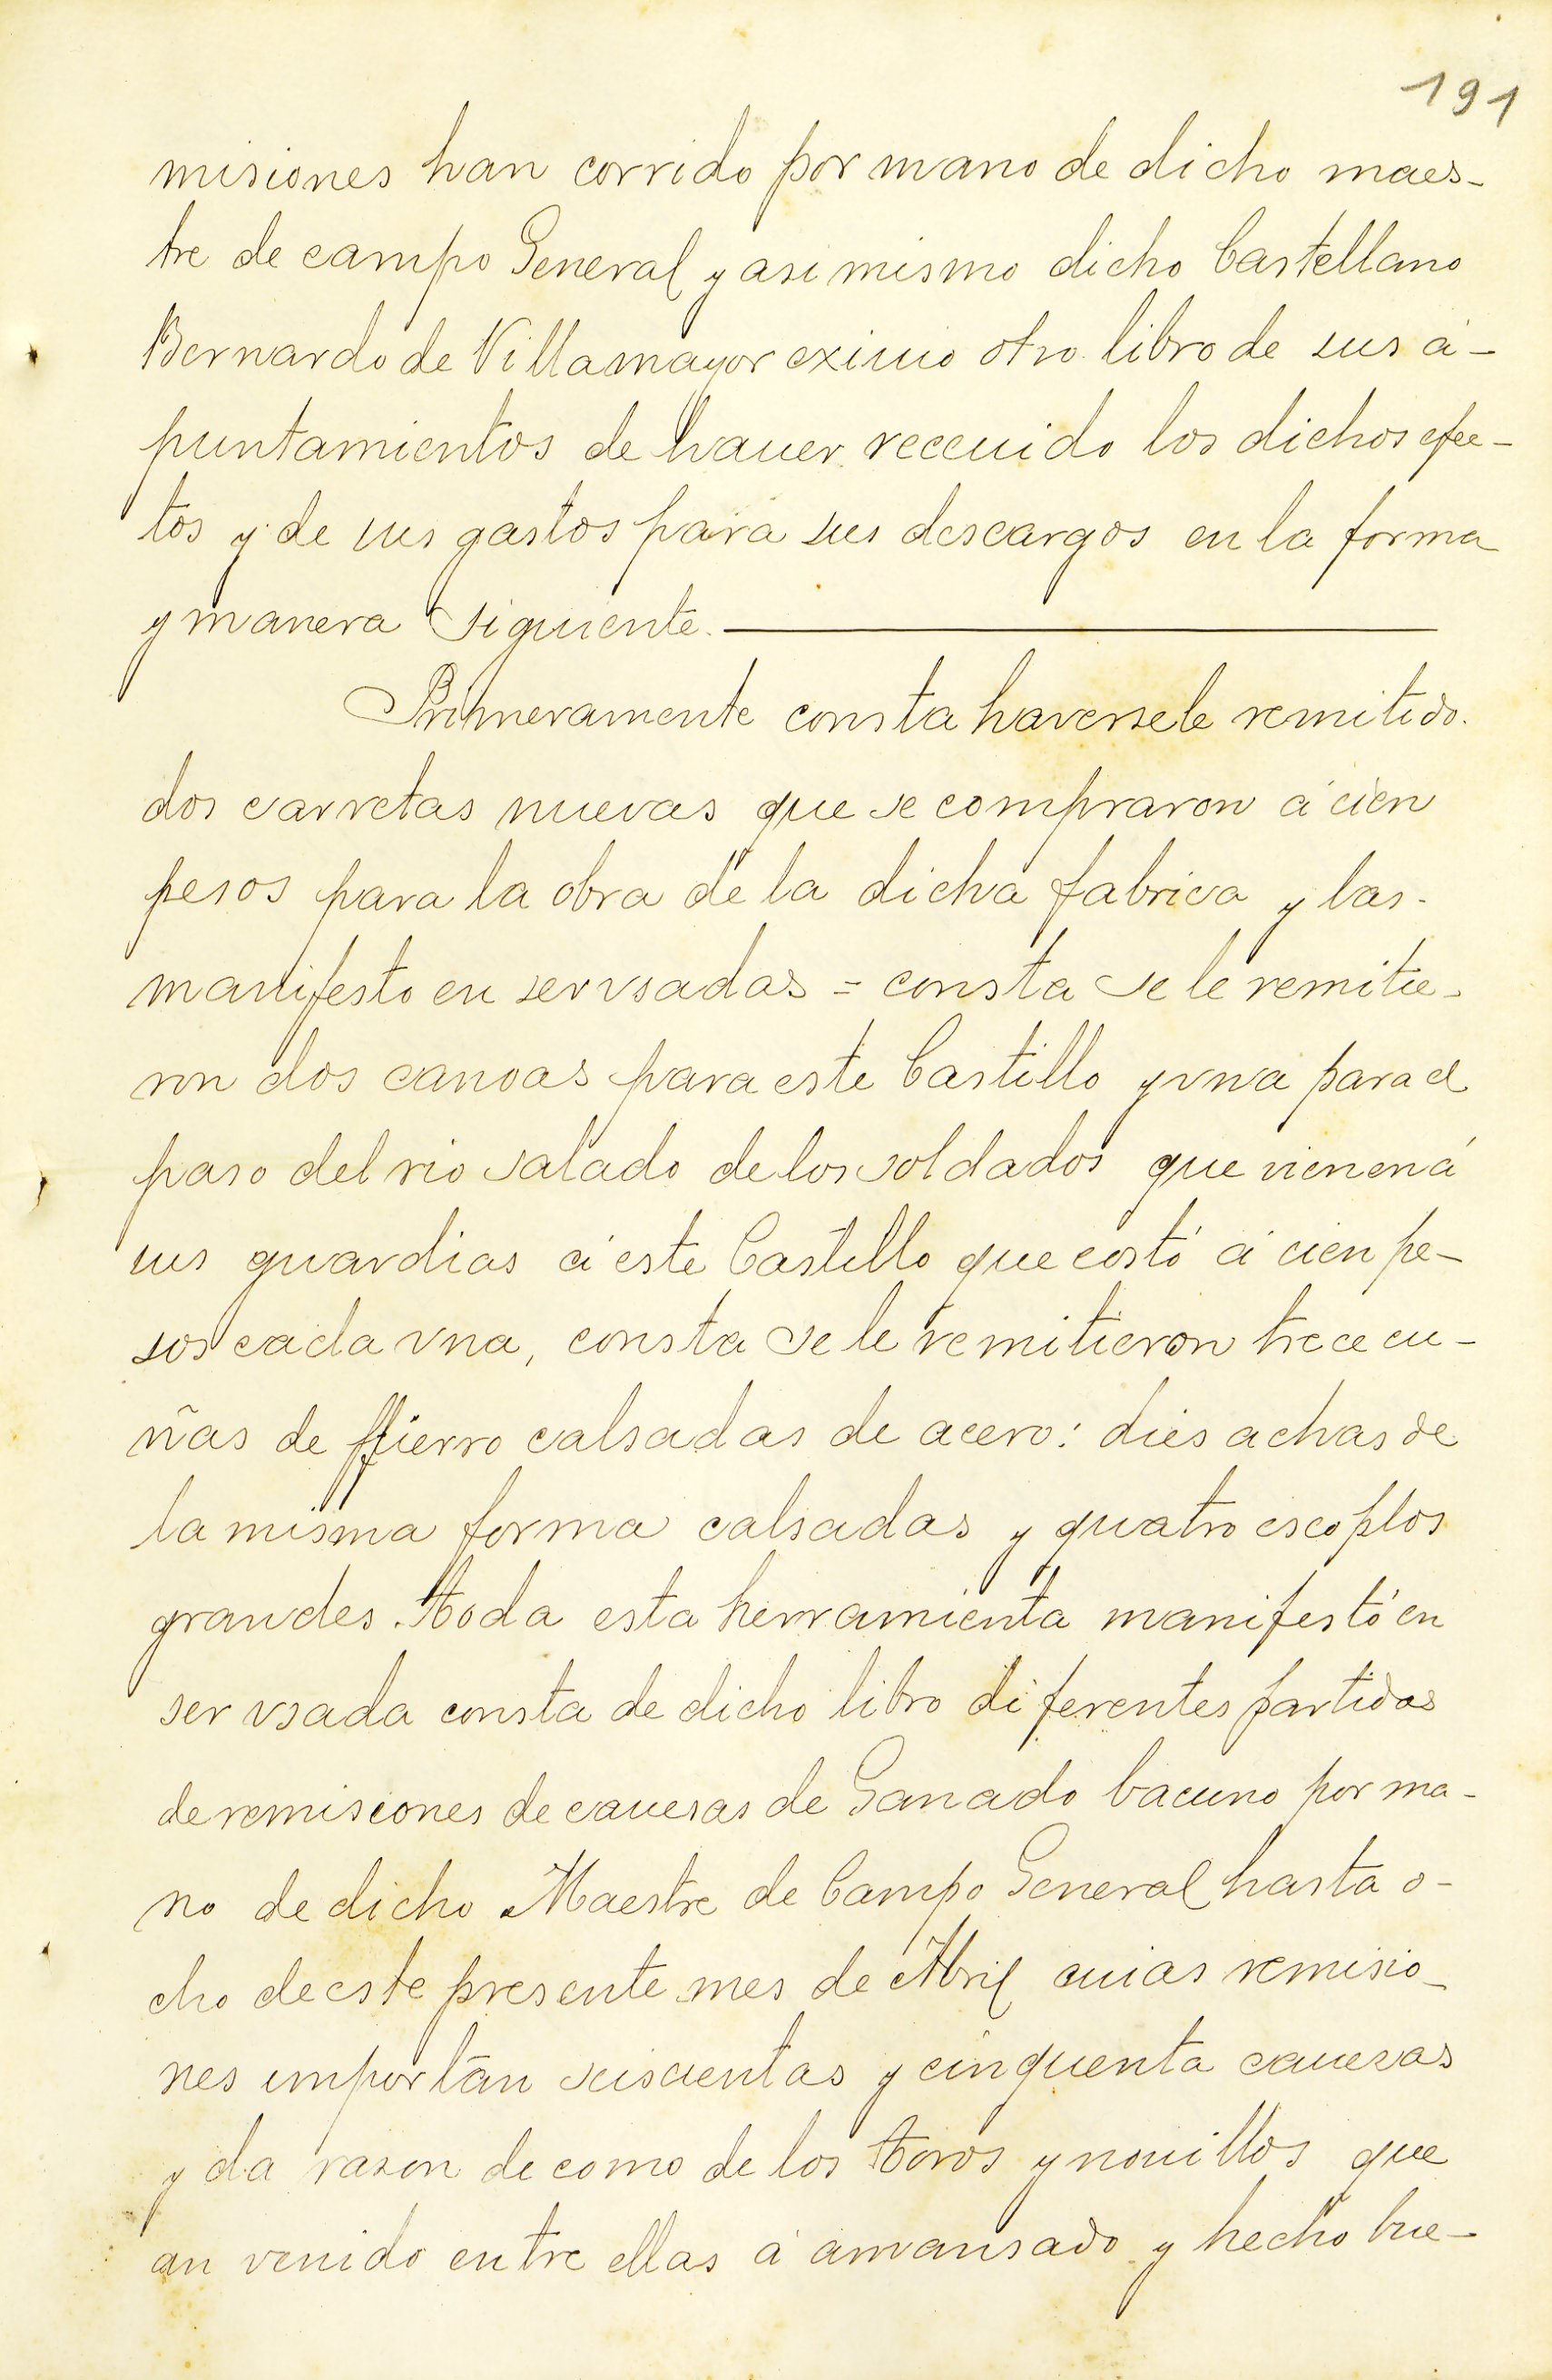 191
misiones han corrido por mano de dicho maes-
tre de campo General y asi mismo dicho Castellano
Bernardo de Villamayor exiuio otro libro de sus á-
puntamientos de hauer receuido los dichos efec-
tos y de sus gastos para sus descargos en la forma
y manera siguiente.
Primeramente consta haversele remitido.
dos carretas nuevas que se compraron á cien
pesos para la obra de la dicha fabrica y las-
manifesto en ser vsadas = consta se le remitie-
ron dos canoas para este Castillo y vna para el
paso del rio salado de los soldados que vienen á
sus guardias á este Castillo que costó á cien pe-
sos cada vna, consta se le remitieron trece cu-
ñas de ffierro calsadas de acero: dies achas de
la misma forma calsadas y quatro escoplos
grandes. toda esta herramienta manifestó en
ser vsada consta de dicho libro diferentes partidas
de remisiones de cauesas de Ganado bacuno por ma-
no de dicho Maestre de Campo General hasta o-
cho de este presente mes de Abril cuias remisio-
nes importan seiscientas y cinquenta cauesas
y da rason de como de los toros y nouillos que
an venido entre ellas á amansado y hecho bue-